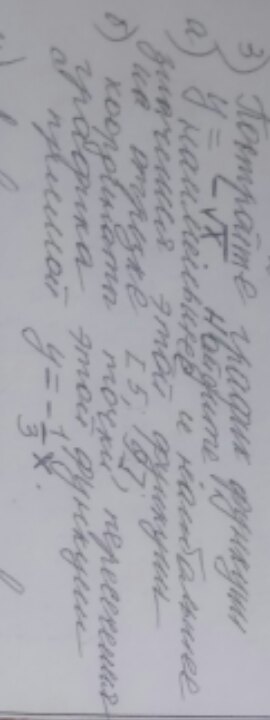 3) Постройте график функции
y = -√x Найдите
а) наименьшее и наибольшее
значения этой функции
на отрезке [5; 9].
б) координаты точки пересечения
графика этой функции
с прямой y = -1/3 x.